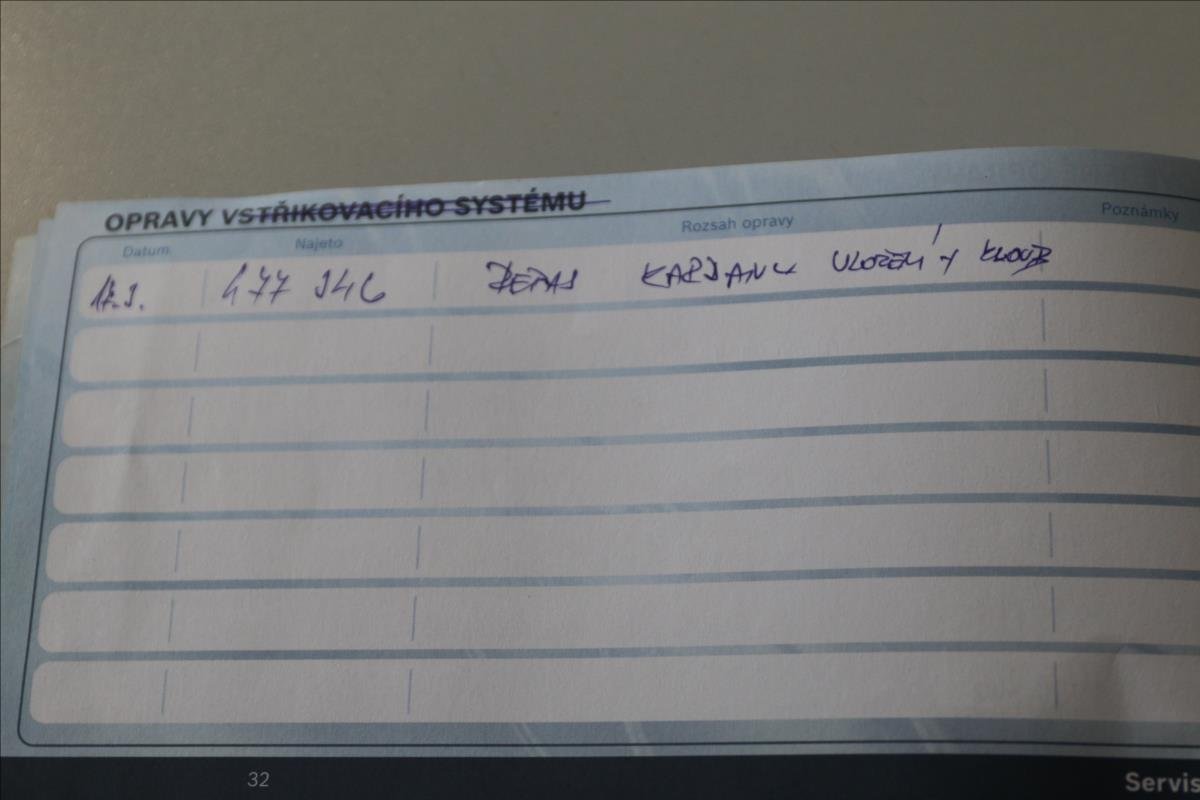 OPRAVY VSTŘIKOVACÍHO SYSTÉMU
Datum Najeto Rozsah opravy Poznámky
477 946 REPAS KARDANU ULOŽENÍ + KLOUB
32 Servis